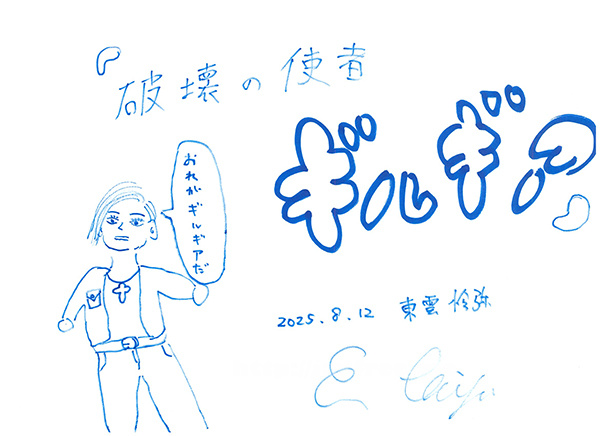 『破壊の使者
ギルギア』
おれがギルギアだ
2025.8.12 東雲伶弥